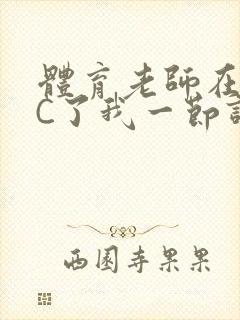 體育老師在
C了我一節
西園寺果果